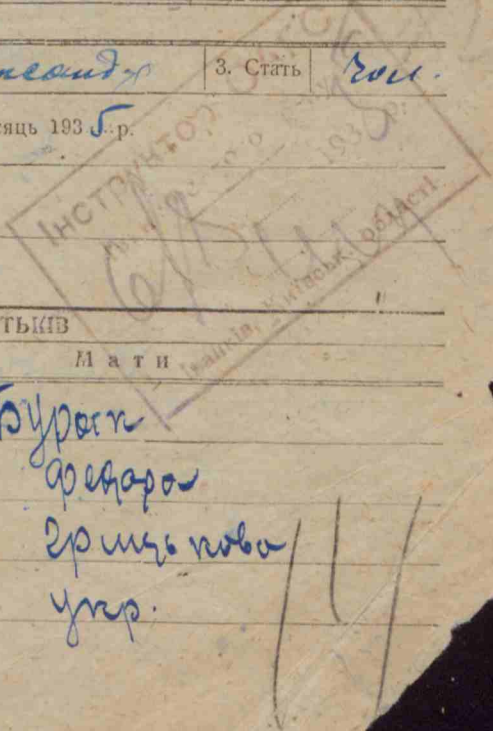 3. Стать чол.
яць 1935 р.
Інструктор
Іванків, Київськ. області
193 р.
тьків
Мати
Бурак
Федора
Грицькова
укр.